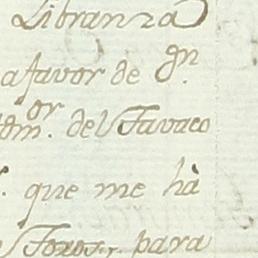 Libranza
a favor de Dn.
or
dm. del Tavaco
que me hà
para